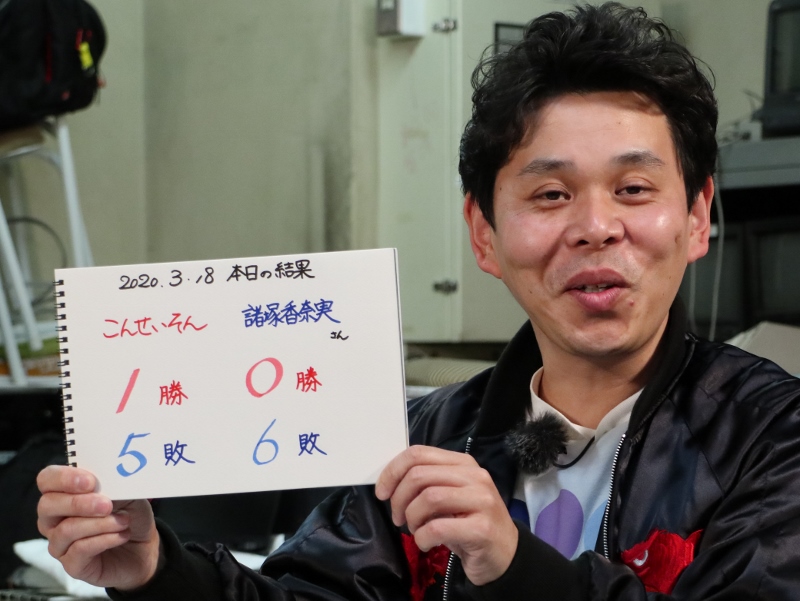 2020.3.18 本日の結果
こんせいそん 諸塚香奈実さん
1勝 0勝
5敗 6敗